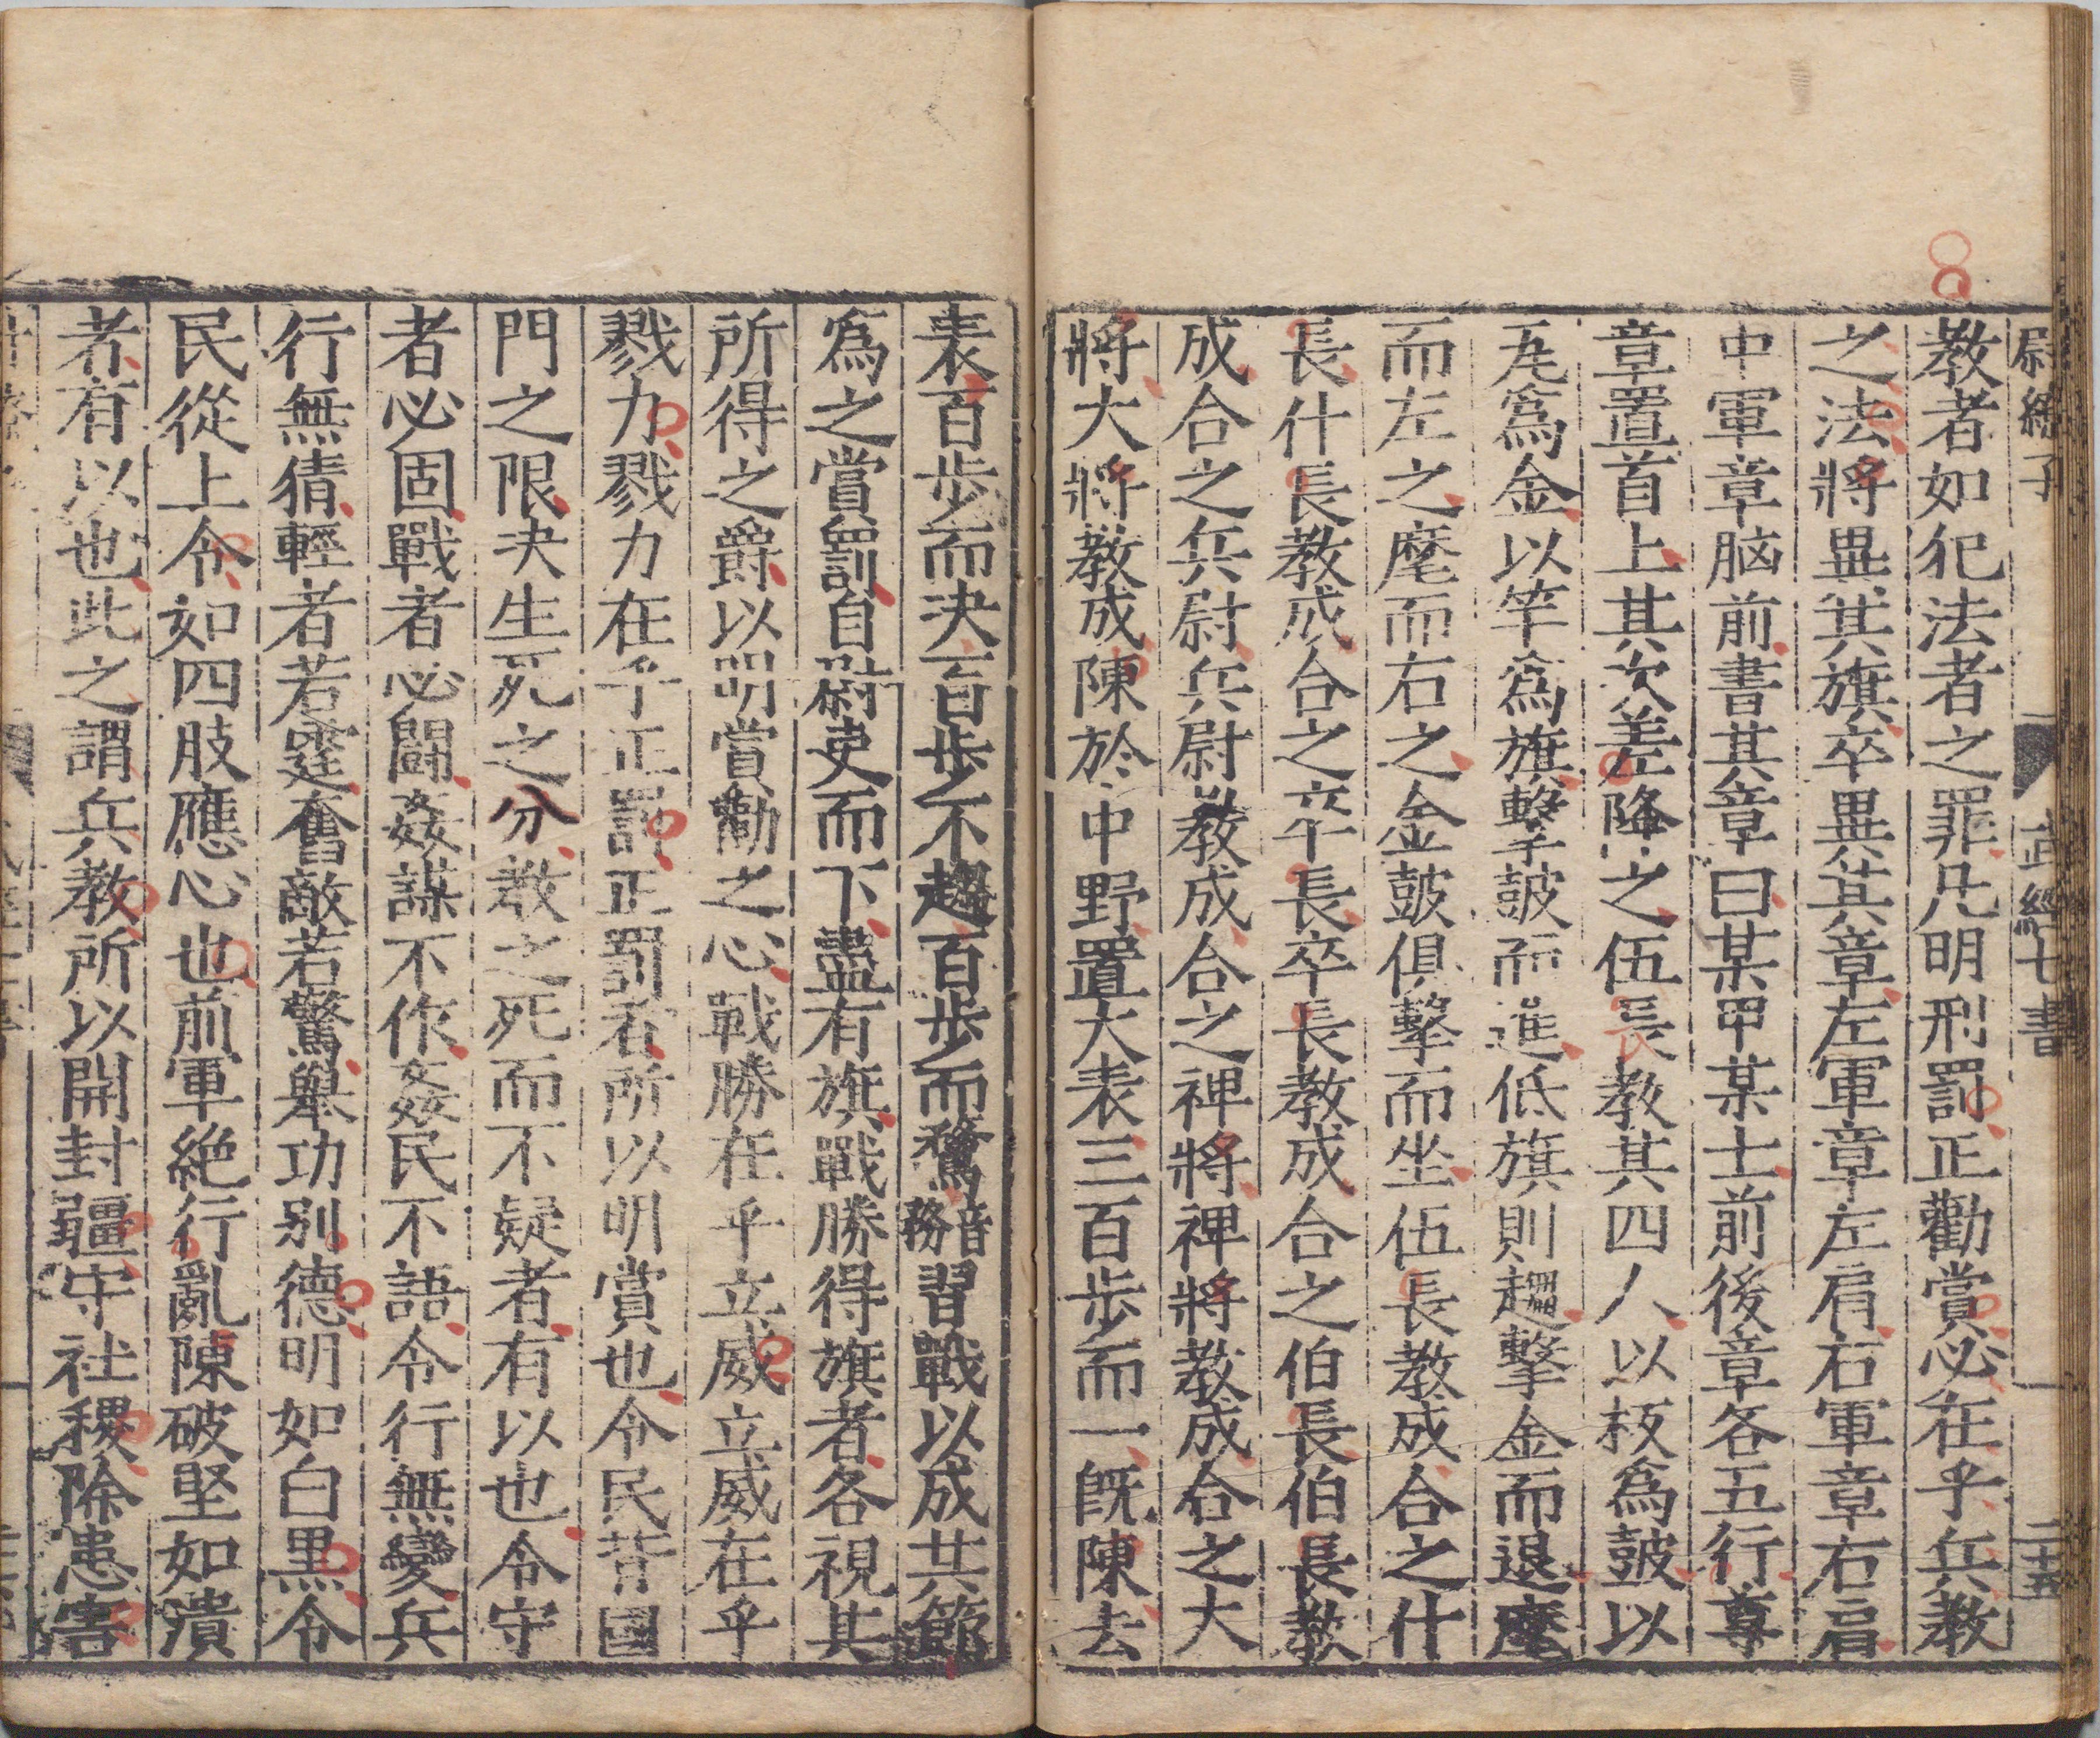 尉繚子
武經七書
二十五
教者如犯法者之罪凡明刑罰正勸賞必在乎兵教
之法將異其旗卒異其章左軍章左肩右軍章右肩
中軍章脑前書其章曰某甲某士前後章各五行尊
章置首上其次差降之伍長教其四人以板爲鼓以
瓦爲金以竿爲旗擊鼓而進低旗則趨擊金而退麾
而左之麾而右之金鼓俱擊而坐伍長教成合之什
長什長教成合之卒長卒長教成合之伯長伯長教
成合之兵尉兵尉教成合之裨將裨將教成合之大
將大將教成陳於中野置大表三百步而一既陳去
表百步而決百步不趨百步而騖音務習戰以成其節
爲之嘗罰自尉吏而下盡有旗戰勝得旗者各視其
所得之爵以明賞勸之心戰勝在乎立威立威在乎
戮力戮力在乎正罰正罰者所以明賞也令民背國
門之限決生死之分教之死而不疑者有以也令守
者必固戰者必鬪姦謀不作姦民不語令行無變兵
行無猜輕者若霆奮敵若驚舉功別德明如白黒令
民從上令如四肢應心也前軍絶行亂陳破堅如潰
者有以也此之謂兵教所以開封疆守社稷除患害